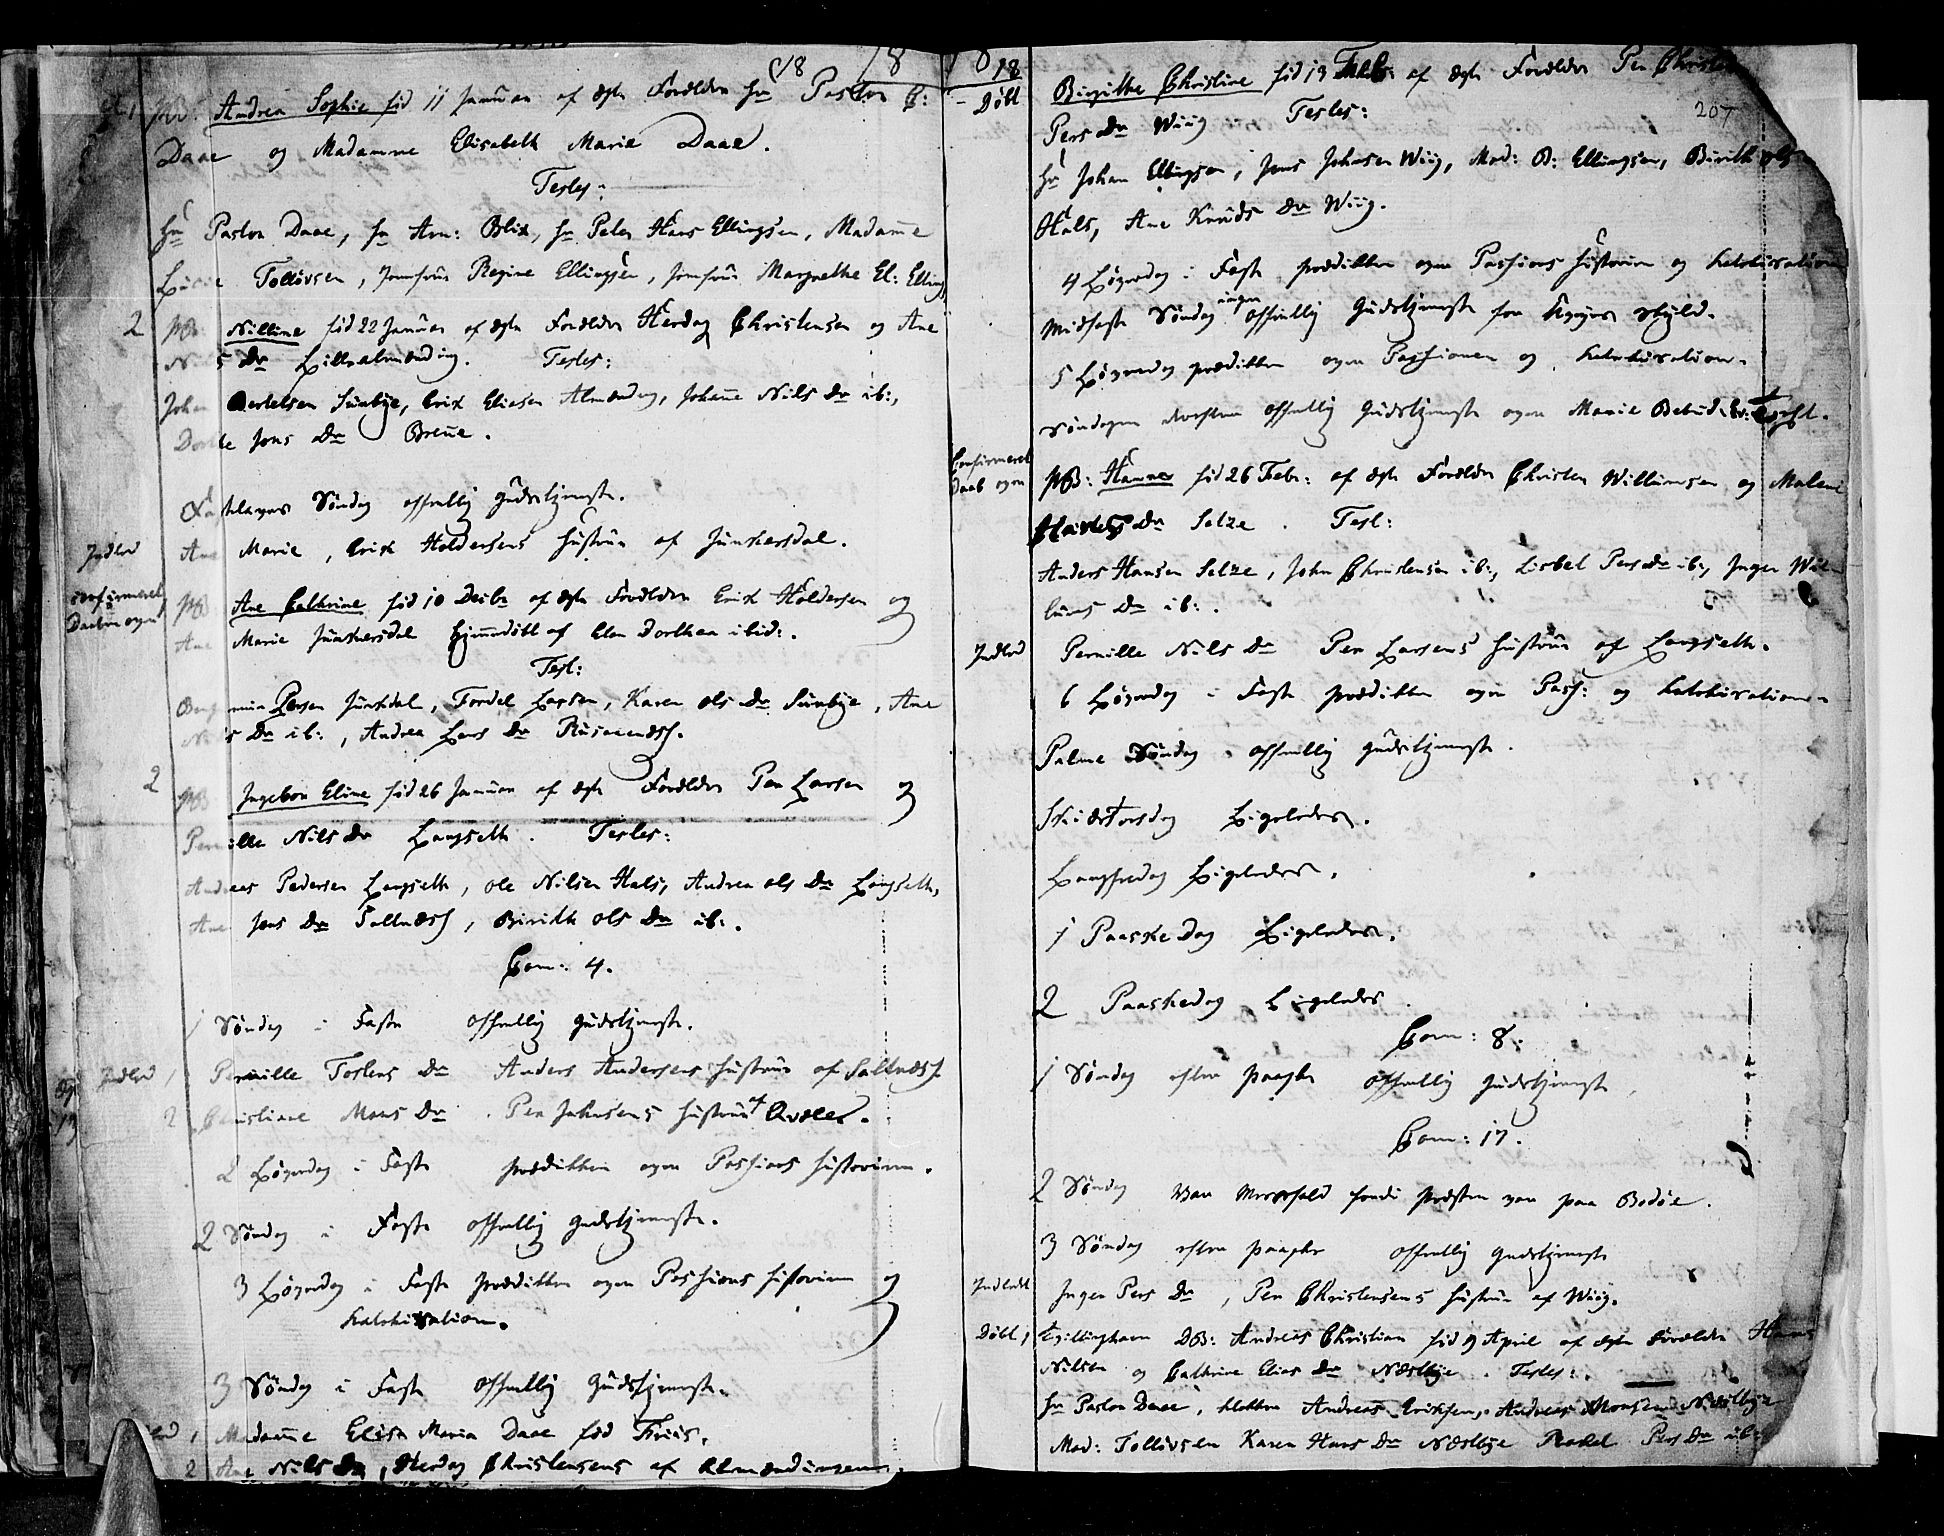 18 18
Andrea Sophie fød 11 Januar af ægte Forældre Hr Pastor C:
Daae og Madamme Elisabeth Marie Daae.
Testes:
Hr Pastor Daae, Hr Arn: Blix, Hr Peter Hans Ellingsen, Madame
Tollevsen, Jomfrue Regine Ellingsen, Jomfrue Margrethe El: Elling
2 Nilline fød 22 Januar af ægte Forældre Herdag Christensen og Ane
Dr Lillealmending. Testes:
Johan Bertelsen Sundbye, Erik Eliasen Almending, Johanne Nils Dr ib:,
Jons Dr Breue.
Fastelavns Søndag offentlig Gudstjeneste.
Indled Ane Marie, Erik Holdersens Hustrue af Junkersdal.
confirmeret
Daaben
Ane Cathrine fød 10 Decbr af ægte Forældre Erik Holdersen og
Ane Marie Junkersdal hjemmedøbt af Elen Dorthea ibid:.
Test:
Persen Junkdal, Tordel Larsen, Karen Ols Dr Sundbye, Ane
Nils Dr ib:, Andrea Lars Dr
2 Ingebor Eline fød 26 Januar af ægte Forældre Per Larsen og
Pernille Nils Dr Langseth. Testes:
Andreas Pedersen Langseth, Ole Nilsen Hals, Andrea Ols Dr Langseth,
Ane Jons Dr Saltnæss, Birith Ols Dr ib:.
Com: 4.
1 Søndag i Faste offentlig Gudstjeneste.
Indled 1 Pernille Dr Anders Andersens Hustrue af Saltnæss
2 Christiane Mons Dr. Per Johnsens Hustrue af Qvæler.
2 Løverdag i Faste prædiken over Passions Historien.
2 Søndag i Faste offentlig Gudstjeneste.
3 Løverdag i Faste prædiken over Passions Historien og
Katekisation.
3 Søndag i Faste offentlig Gudstjeneste.
1 Madamme Elisa Maria Daae fød Friis.
2 Ane Nils Dr, Herdag Christensens af Almendingen.
18
207
Døbt Birgithe Christine fød 13 Febr: af ægte Forældre Per Christen
Pers Dr Wiig Testes:
Hr Johan Ellingsen, Jens Johnsen Wiig, Mad: B: Ellingsen, Birith Ols
Hals, Ane Knuds Dr Wiig.
4 Løverdag i Faste prædiken over Passions Historien og Katekisation
Midfaste Søndag ingen offentlig Gudstjeneste for skyld.
5 Løverdag prædiken over Passionen og Katekisation.
Søndagen offentlig Gudstjeneste over Marie Bebud:
Confirmeret
Daab
Hanna fød 26 Febr: af ægte Forældre Christen Willumsen og Malene
Dr Selze. Test:
Anders Hansen Selze, John Christensen ib:, Lisbet Pers Dr ib:, Inger Wil
lums Dr ib:.
Indled Pernille Nils Dr Per Larsens Hustrue af Langseth.
6 Løverdag i Faste prædiken over Pass: og Katekisation
Palme Søndag offentlig Gudstjeneste.
Skiærtorsdag Ligeledes.
Langfredag Ligeledes.
1 Paaske Dag Ligeledes.
2 Paaskedag Ligeledes.
Com: 8.
1 Søndag efter Paaske offentlig Gudstjeneste
Com: 17.
2 Søndag Var Messefald fordi Præsten var paa Bodøe.
3 Søndag efter Paaske offentlig Gudstjeneste
Indledt Inger Pers Dr, Per Christensens Hustrue af Wiig.
Døbt 1 DB: Andreas Christian fød 9 April af ægte Forældre Hans
Nilsen og Cathrine Elias Dr Næstbye. Testes:
Hr Pastor Daae, Klokker Andreas Eriksen, Andreas Monsen Næstbye
Mad: Tollevsen Karen Hans Dr Næstbye Rakel Pers Dr ib: